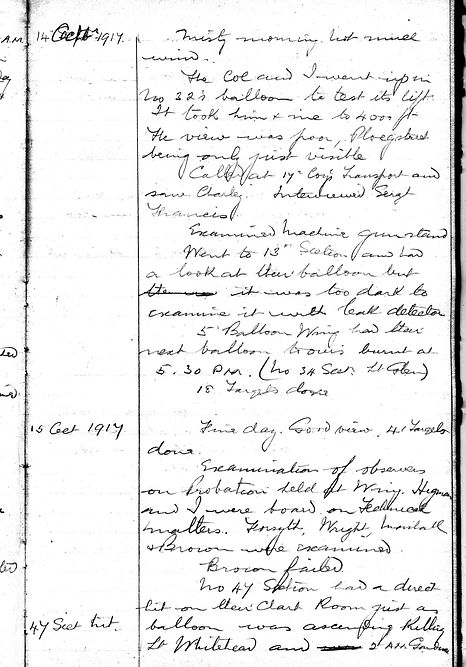 14 Octbr 1917.
Misty morning but much
wind.
The Col and I went up in
No 32's balloon to test its lift
It took him & me to 4000 ft
The view was poor, Ploegsteert
being only just visible
Called at 17 Coy's Transport and
saw Charley. Interviewed Sergt
Francis.
Examined machine gun stand
Went to 13th Section and had
a look at their balloon but
it was too dark to
examine it with leak detector
5th Balloon Wing had their
next balloon to ours burnt at
5.30 P.M. (No 34 Sect. Lt
18 Targets done
15 Oct 1917
Fine day. Good view. 41 Targets
done.
Examination of observers
on Probation held at Wing. Higman
and I were board on Technical
matters. Forsyth, Wright, Marshall
& Brown were examined.
Brown failed
No 47 Section had a direct
hit on their Chart Room just as
47 Sect hit.
balloon was ascending killing
Lt Whitehead and 2 A.M.